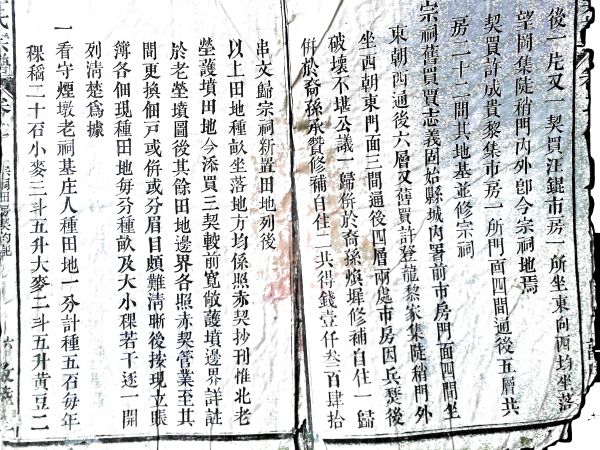 後一片又一契買汪錕市房一所坐東向西均坐落
望崗集陡稍門內外卽今宗祠地焉
契買許成貴黎集市房一所門面四間通後五層共
房二十二間其地基並修宗祠
宗祠舊買賈志義固始縣城內署前市房門面四間坐
東朝西通後六層又舊買許登龍黎家集陡稍門外
坐西朝東門面三間通後四層兩處市房因兵燹後
破壞不堪公議一歸併於裔孫熉墀修補自住一歸
併於裔孫承贊修補自住二共得錢壹仟叁百肆拾
串文歸宗祠新置田地列後
以上田地種畝坐落地方均係照赤契抄刊惟北老
塋護墳田地今添買三契較前寬敞護墳邊界詳註
於老塋墳圖後其餘田地邊界各照赤契管業至其
間更換佃戸或併或分眉目頗難清晰後按現立賬
簿各佃現種田地每分種畝及大小稞若干逐一開
列清楚爲據
一看守煙墩老祠基庄人種田地一分計種五石每年
稞稻二十石小麥三斗五升大麥二斗五升黃豆二
六